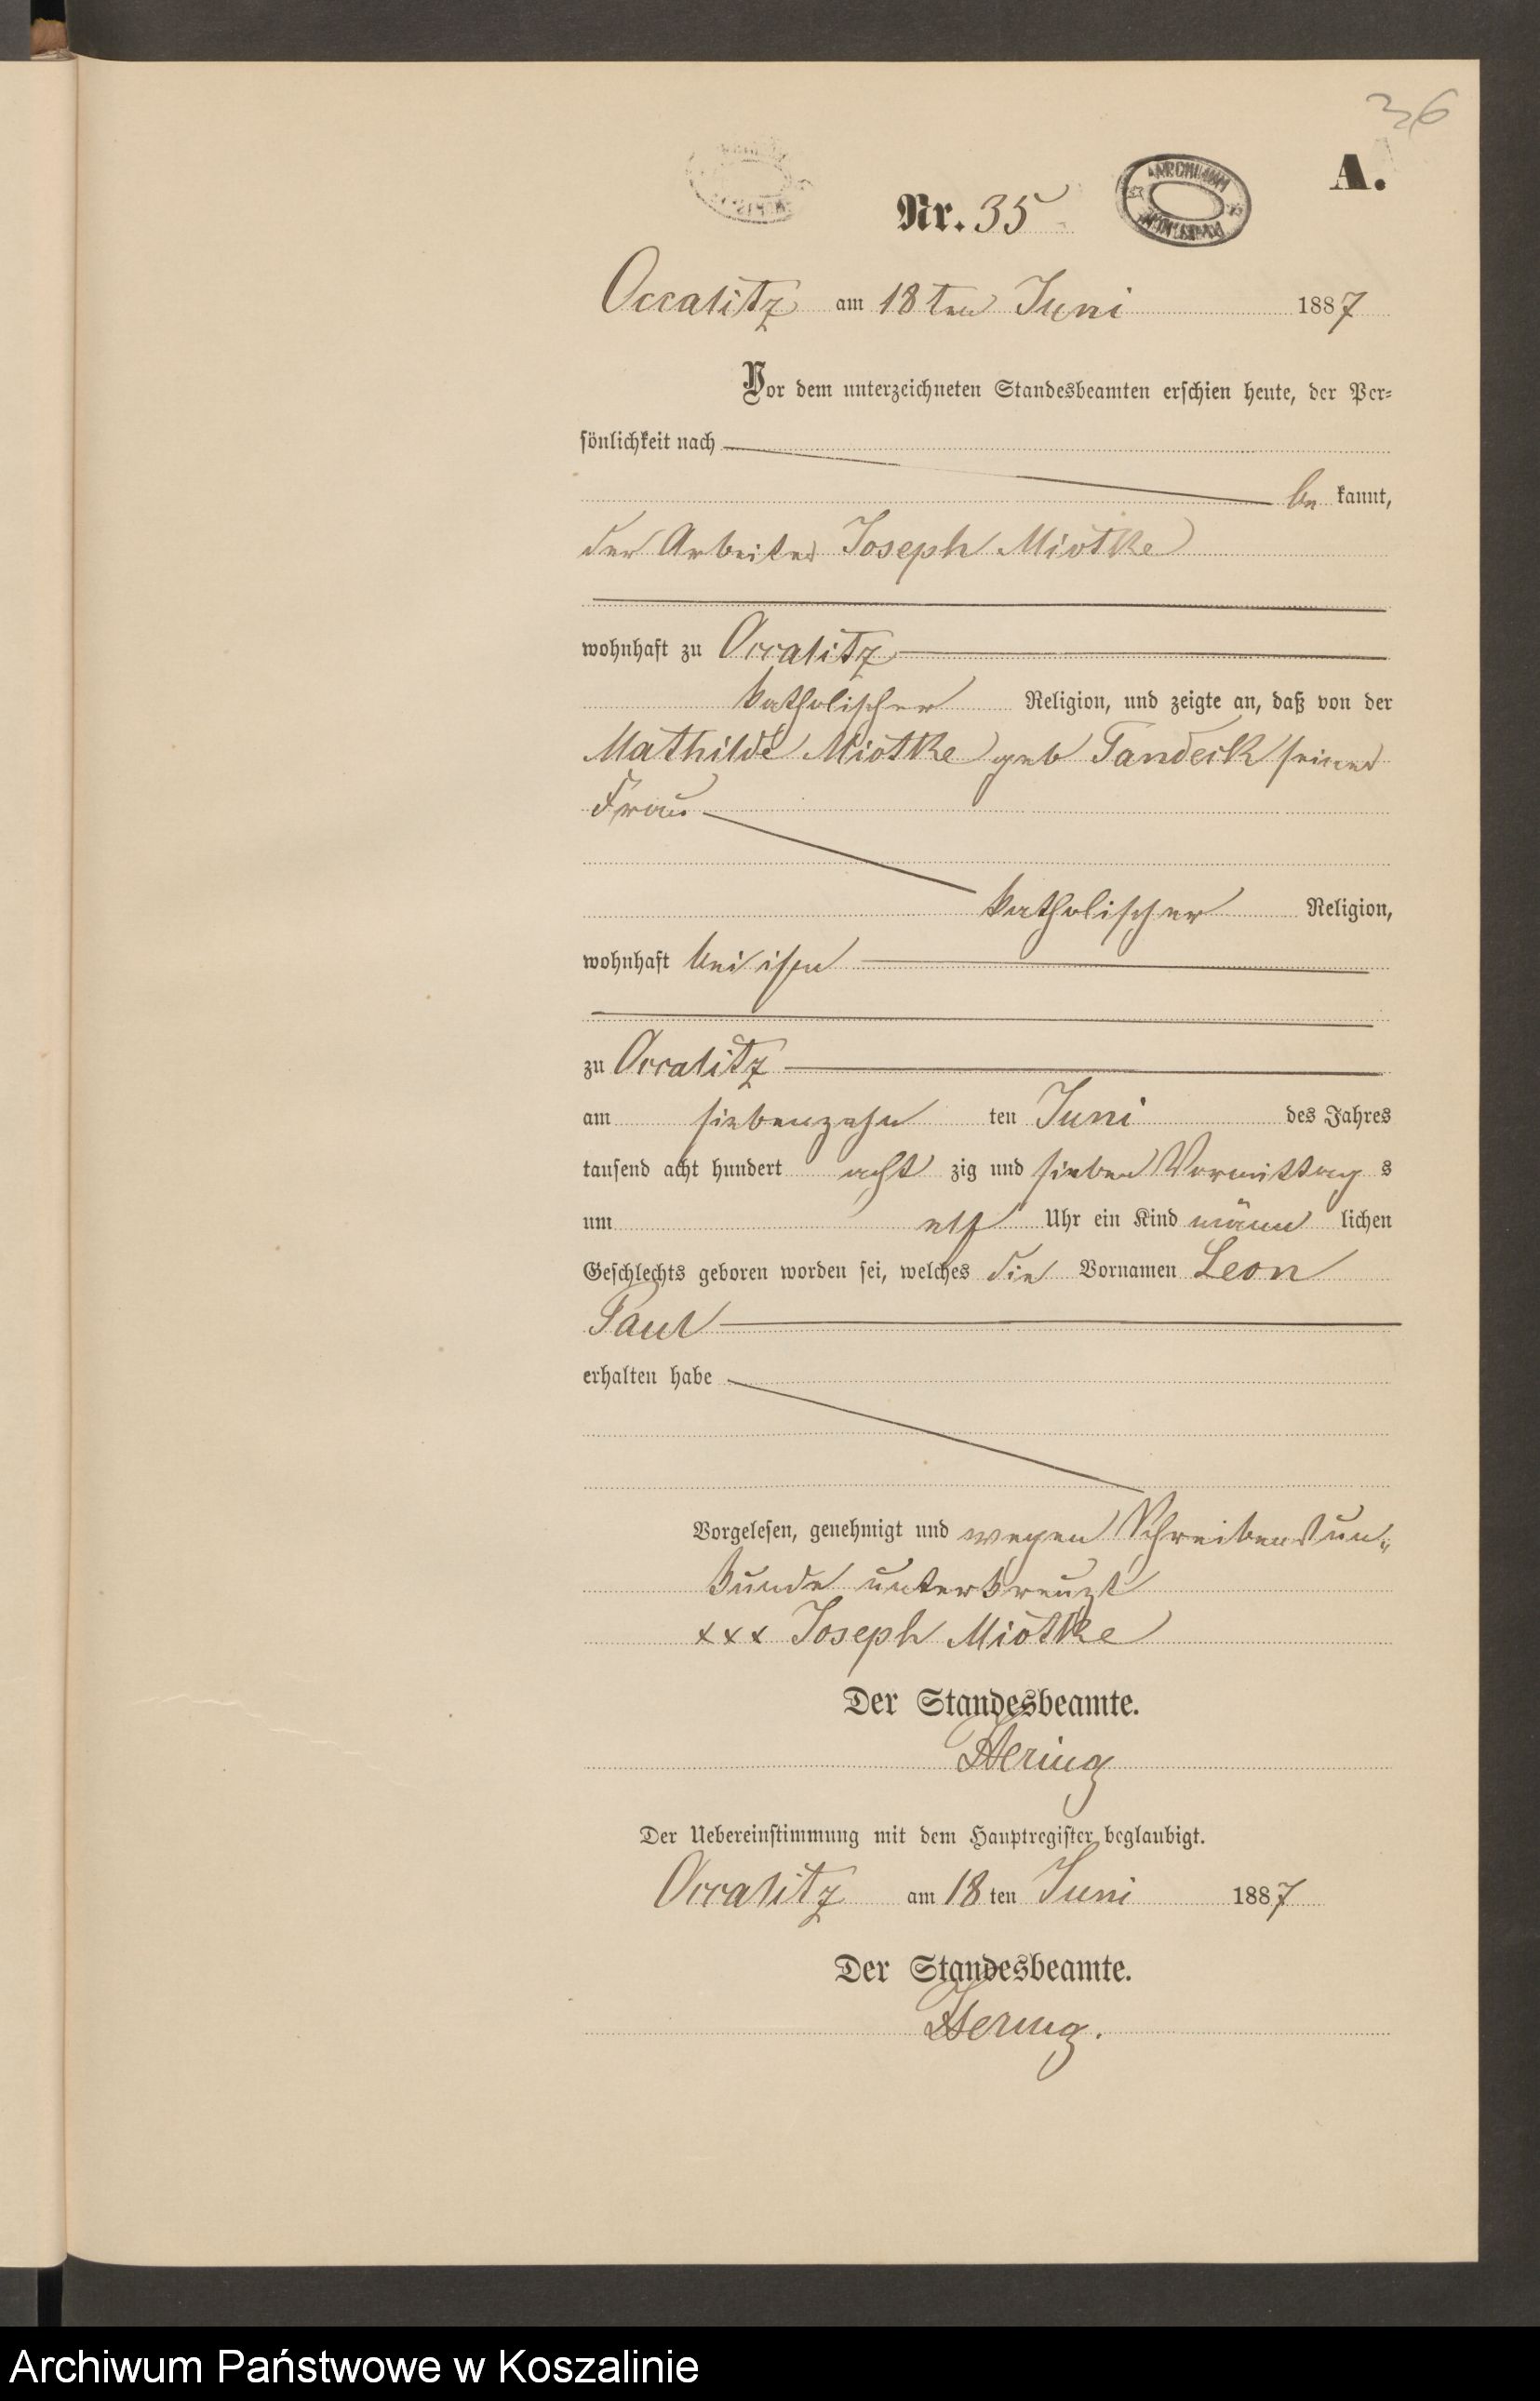 36
A.
Nr. 35
ARCHIWUM
Occalitz am 18ten Juni 1887
Vor dem unterzeichneten Standesbeamten erschien heute, der Per-
sönlichkeit nach
be kannt,
der Arbeiter Joseph Miotke
wohnhaft zu Occalitz
katholischer Religion, und zeigte an, daß von der
Mathilde Miotke geb Tandeck seiner
Frau
katholischer Religion,
wohnhaft bei ihm
zu Occalitz
am siebenzehn ten Juni des Jahres
tausend acht hundert acht zig und sieben Vormittag s
um elf Uhr ein Kind männ lichen
Geschlechts geboren worden sei, welches die Vornamen Leon
Paul
erhalten habe
Vorgelesen, genehmigt und wegen Schreibens un„
kunde unterkreuzt
xxx Joseph Miotke
Der Standesbeamte.
Hering
Der Uebereinstimmung mit dem Hauptregister beglaubigt.
Occalitz am 18 ten Juni 1887
Der Standesbeamte.
Hering.
Archiwum Państwowe w Koszalinie